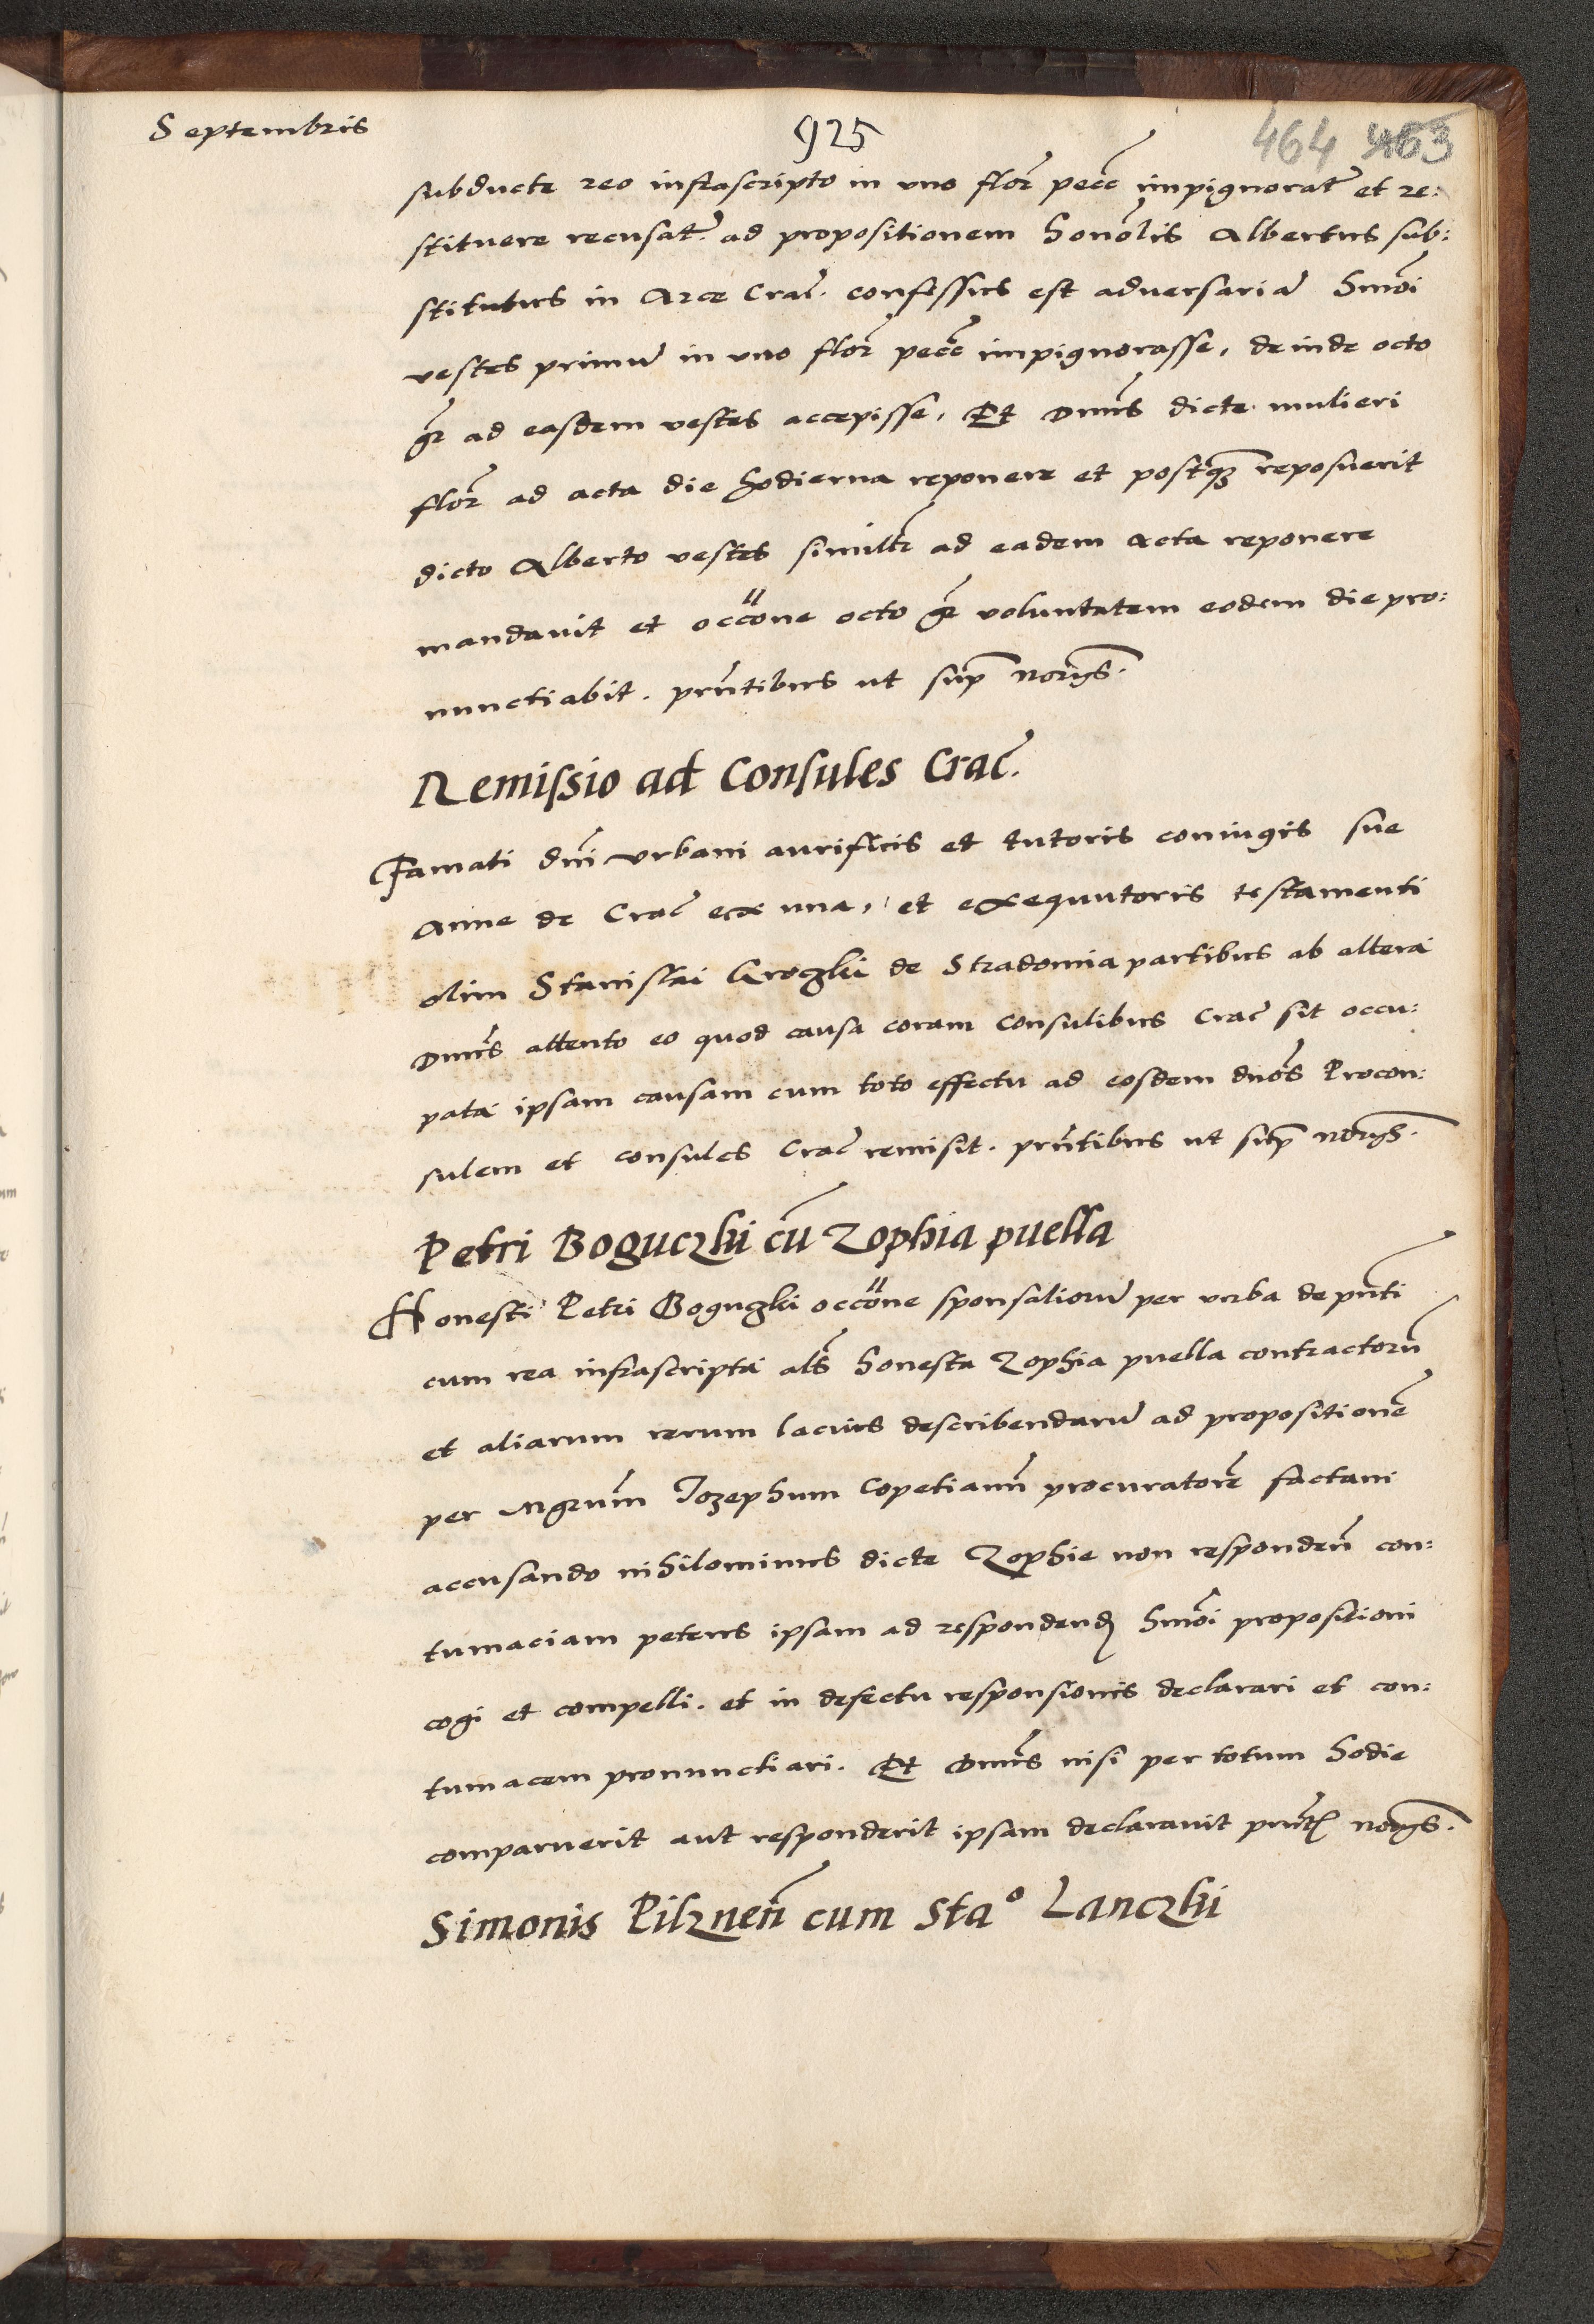 Septembris
925
464 463
subducte reo infrascripto in uno flor̄ pecc̄ impignorat̄ et re:
stituere recusat̄. ad propositionem honōlis Albertus sub:
stitutus in Arce Crac̄. confessus est adversariā hmōi
vestes primū in uno flor̄ pecc̄ impignorasse, deinde octo
gr̄ ad easdem vestes accepisse, Et Dnūs dicte mulieri
flor̄ ad acta die hodierna reponere et postq̄ reposuerit
dicto Alberto vestes similtr̄ ad eadem acta reponere
mandavit et occōne octo gr̄ voluntatem eodem die pro:
nunctiabit. prn̄tibus ut sup̄ nor̄ys.
Remissio ad Consules Crac̄.
Famati dn̄i Urbani aurificis et tutoris coniugis sue
Anne de Crac̄ ex una, et exequutoris testamenti
olim Stanislai Grogki de Stradomia partibus ab altera
Dnūs attento eo quod causa coram Consulibus Crac̄ sit occu:
pata ipsam causam cum toto effectu ad eosdem dnōs Procon:
sulem et consules Crac̄ remisit. prn̄tibus ut sup̄ nor̄ys.
Petri Boguczki cū Zophia puella
Honesti Petri Bogugki occōne sponsaliorū per verba de pn̄ti
cum rea infrascripta als̄ honesta Zophia puella contractorū
et aliarum rerum lacius describendarū ad propositionē
per Mgrum̄ Jozephum Copetianū procuratorē factam
accusando nihilominus dicte Zophie non responden̄ con:
tumaciam petens ipsam ad respondend̄ hmōi propositioni
cogi et compelli. et in defectu responsionis declarari et con:
tumacem pronunctiari. Et Dnūs nisi per totum hodie
comparuerit aut responderit ipsam declaravit prn̄tˀ norys.
Simonis Pilznen̄ cum Sta° Lanczki